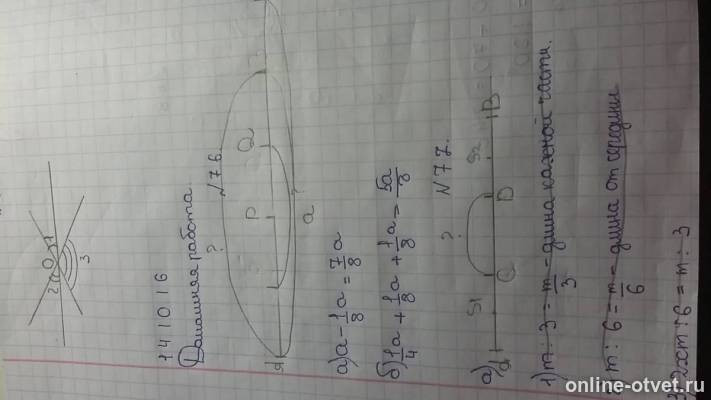 1 2 3
14 10 16
Домашняя работа.
N76.
?
P Q
a
а) a - 1/8 a = 7/8 a
б) 1/4 a + 1/8 a + 1/8 a = 5a/8
N77.
?
а) S1 C D S2 B
1) m : 3 = m/3 - длина каждой части.
m : 6 = m/6 - длина от середины
: 6 = m : 3
online-otvet.ru